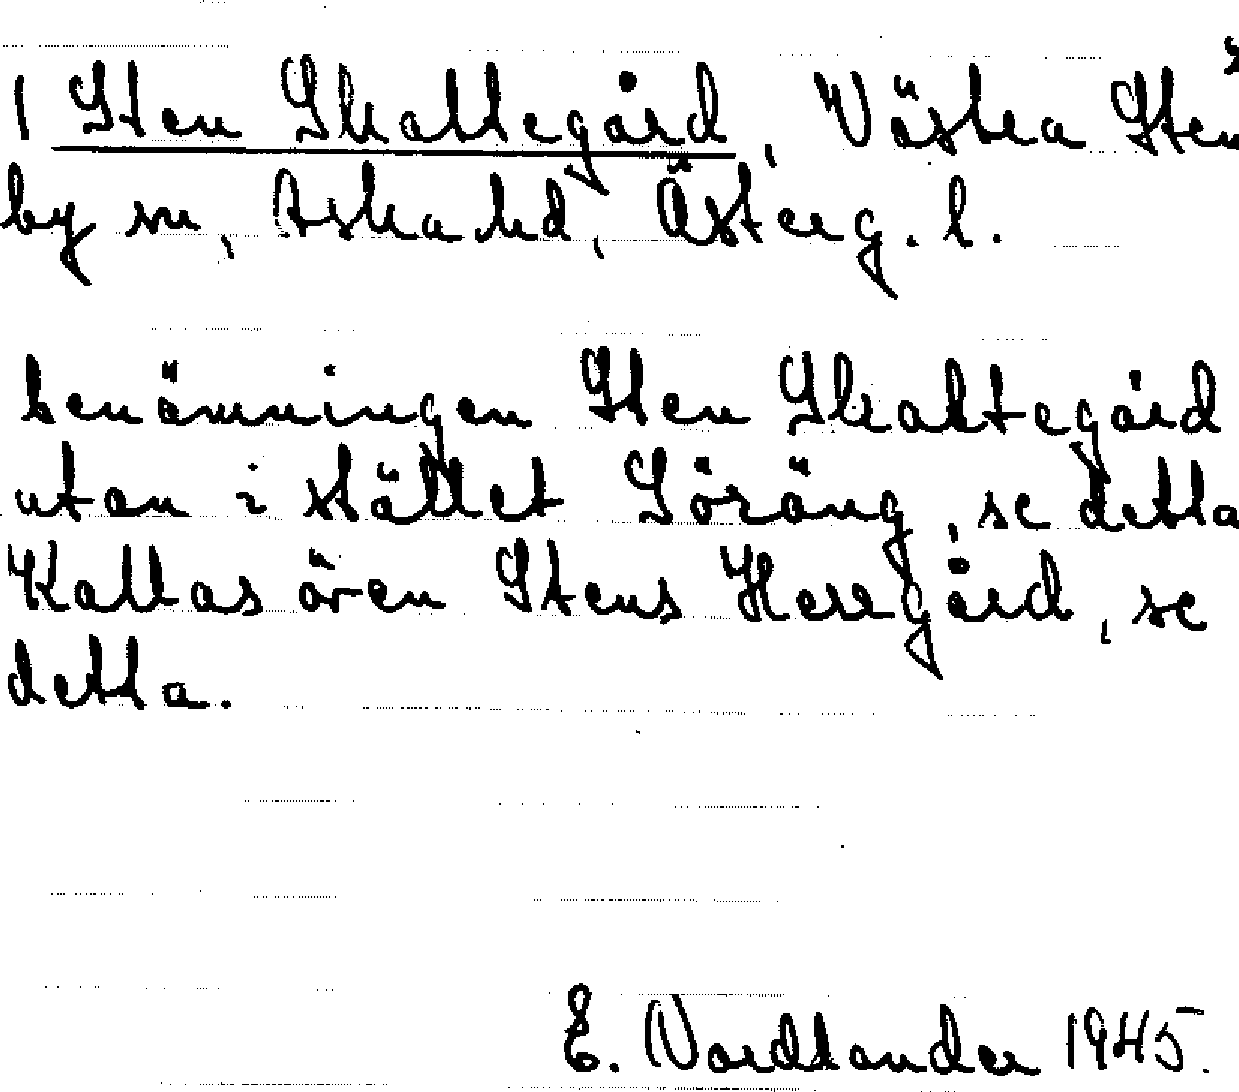 1 Sten Skattegård, Västra Sten
by sn, Aska hd, Österg. l.
benämningen Sten Skattegård
utan i stället Söräng, se detta
Kallas även Stens Herrgård, se
detta.
E. Nordlander 1945.